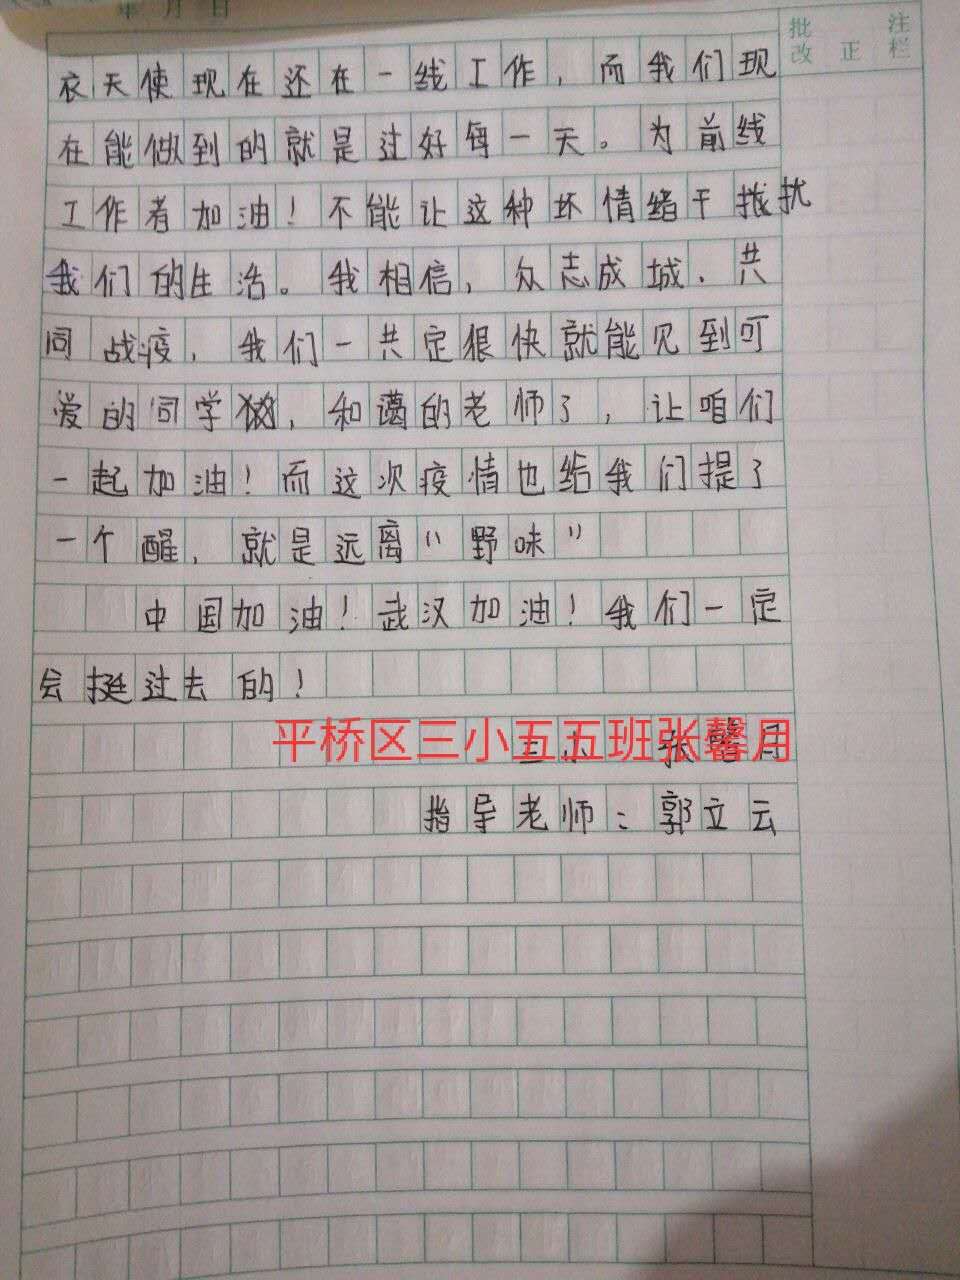 年 月 日
批 注
改 正 栏
衣天使现在还在一线工作，而我们现
在能做到的就是过好每一天。为前线
工作者加油！不能让这种坏情绪干扰
我们的生活。我相信，众志成城，共
同战疫，我们一共定很快就能见到可
爱的同学，和蔼的老师了，让咱们
一起加油！而这次疫情也给我们提了
一个醒，就是远离“野味”
中国加油！武汉加油！我们一定
会挺过去的！
平桥区三小五五班张馨月
三小 张馨月
指导老师：郭立云